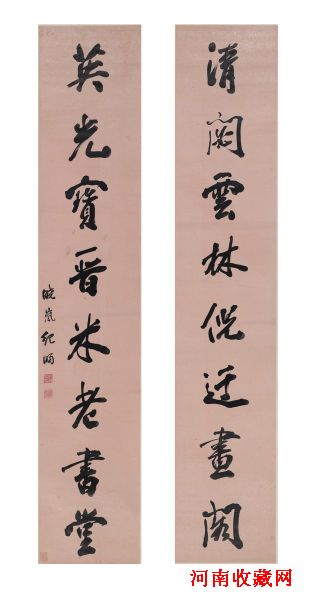 清閟雲林倪迂畫閣
英光寶晉米老書堂
曉嵐紀昀
河南收藏网